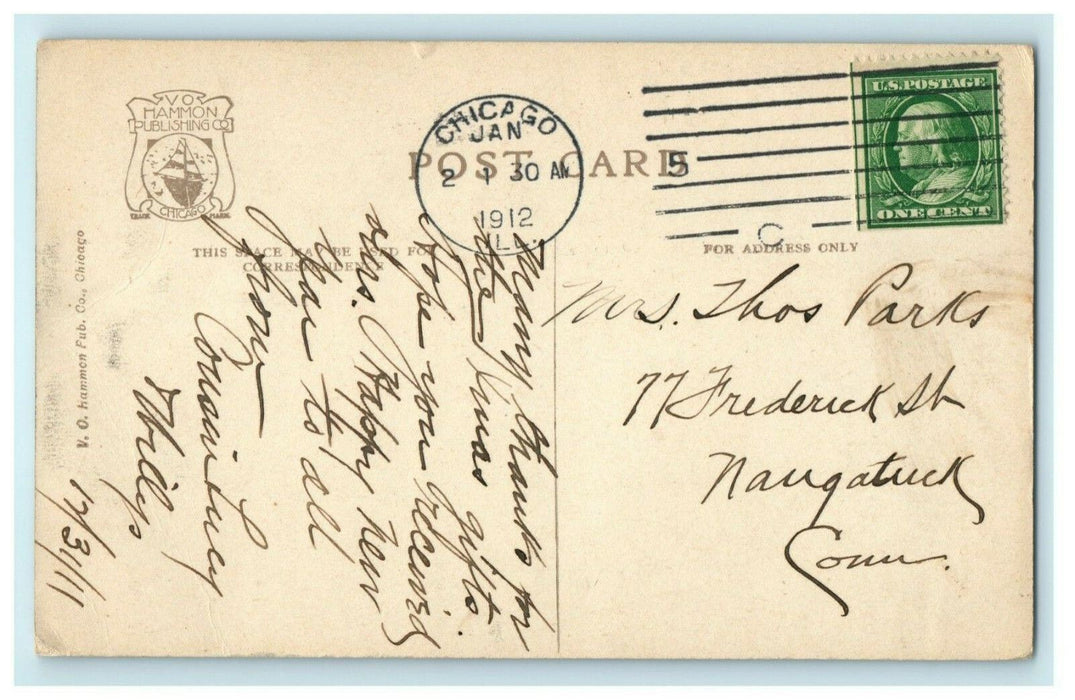 V O
HAMMON
PUBLISHING CO
TRADE MARK
CHICAGO
POST CARD
CHICAGO
JAN
2 1 30 AM
1912
ILL.
5
C
U.S. POSTAGE
ONE CENT
THIS SPACE MAY BE USED FOR
CORRESPONDENCE
FOR ADDRESS ONLY
V. O. Hammon Pub. Co., Chicago
Many thanks for
the Xmas gifts.
Hope you received
ours. Happy New
Year to all
from
Cousin Lucy
12/31/11
Mrs. Thos Parks
77 Frederick St
Naugatuck
Conn.